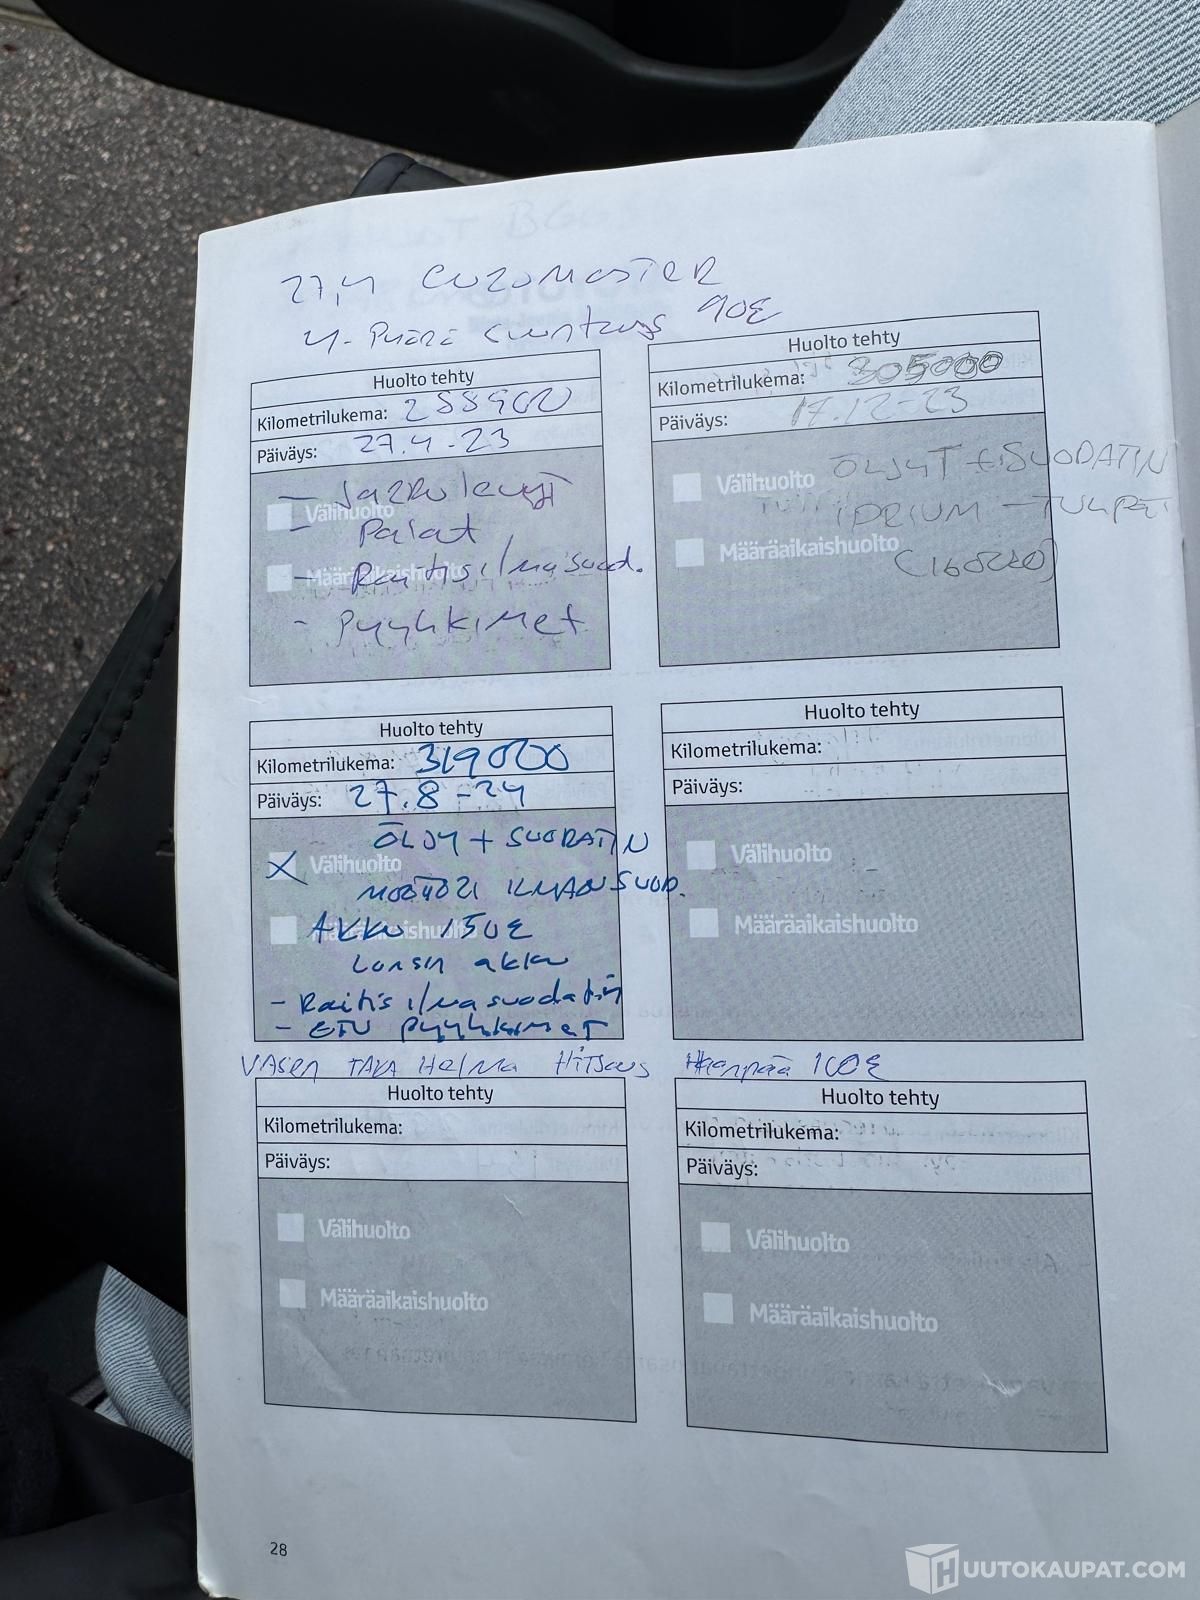 27,4 EUROMASTER
4-Pyörä suuntaus 90€
Huolto tehty
Kilometrilukema: 288900
Päiväys: 27.4-23
- Jarrulevyt
Välihuolto
- Palat
Määräaikaishuolto
- Raitisilmasuod.
- Pyyhkimet
Huolto tehty
Kilometrilukema: 305000
Päiväys: 17.12-23
ÖLJYT + SUODATIN
Välihuolto
IDRIUM - TULPAT
Määräaikaishuolto
Huolto tehty
Kilometrilukema: 319000
Päiväys: 27.8-24
ÖLJY + SUODATIN
Välihuolto
ILMANSUOD.
AKKU 150€
Määräaikaishuolto
akku
- Raitis ilmasuodatin
- ETU PYYHKIMET
Huolto tehty
Kilometrilukema:
Päiväys:
Välihuolto
Määräaikaishuolto
VASEN TAKA Helma HITSAUS Haanpää 100€
Huolto tehty
Kilometrilukema:
Päiväys:
Välihuolto
Määräaikaishuolto
Huolto tehty
Kilometrilukema:
Päiväys:
Välihuolto
Määräaikaishuolto
28
HUUTOKAUPAT.COM